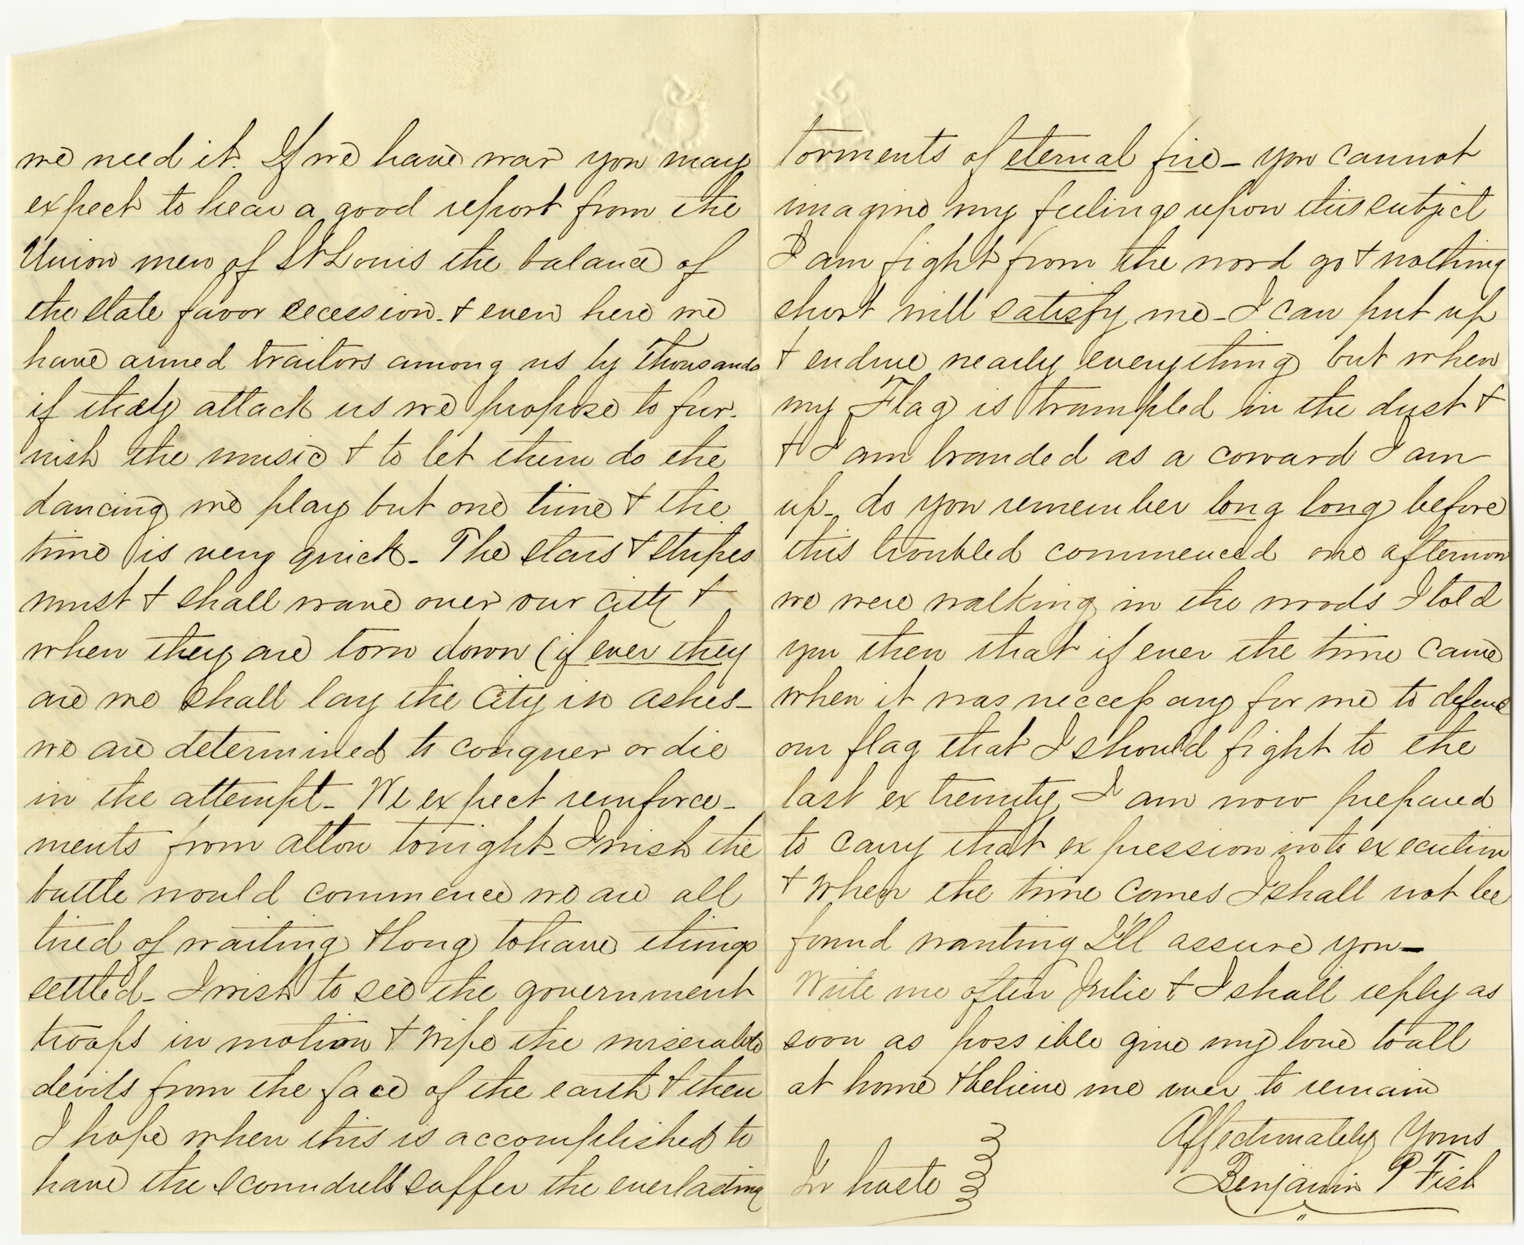 we need it. If we have war you may
expect to hear a good report from the
Union men of St Louis the balance of
the state favor secession. & even here we
have armed traitors among us by thousands
if they attack us we propose to fur-
nish the music & to let them do the
dancing we play but one time & the
time is very quick - The stars & stripes
must & shall wave over our city &
when they are torn down (if ever they
are we shall lay the City in ashes -
we are determined to conquer or die
in the attempt - We expect reinforce-
ments from alton tonight - I wish the
battle would commence we are all
tired of waiting & long to have things
settled - I wish to see the government
troops in motion & wipe the miserable
devils from the face of the earth & then
I hope when this is accomplished to
have the scoundrells suffer the everlasting
torments of eternal fire - you cannot
imagine my feelings upon this subject
I am fight from the word go & nothing
short will satisfy me - I can put up
& endure nearly everything but when
my Flag is trampled in the dust &
& I am branded as a coward I am
up - do you remember long long before
this troubled commenced one afternoon
we were walking in the woods I told
you then that if ever the time came
when it was neccessary for me to defend
our flag that I should fight to the
last extremity I am now prepared
to carry that expression into execution
& when the time comes I shall not be
found wanting I'll assure you -
Write me often Julie & I shall reply as
soon as possible give my love to all
at home & believe me ever to remain
Affectionately Yours
In haste Benjamin P Fish